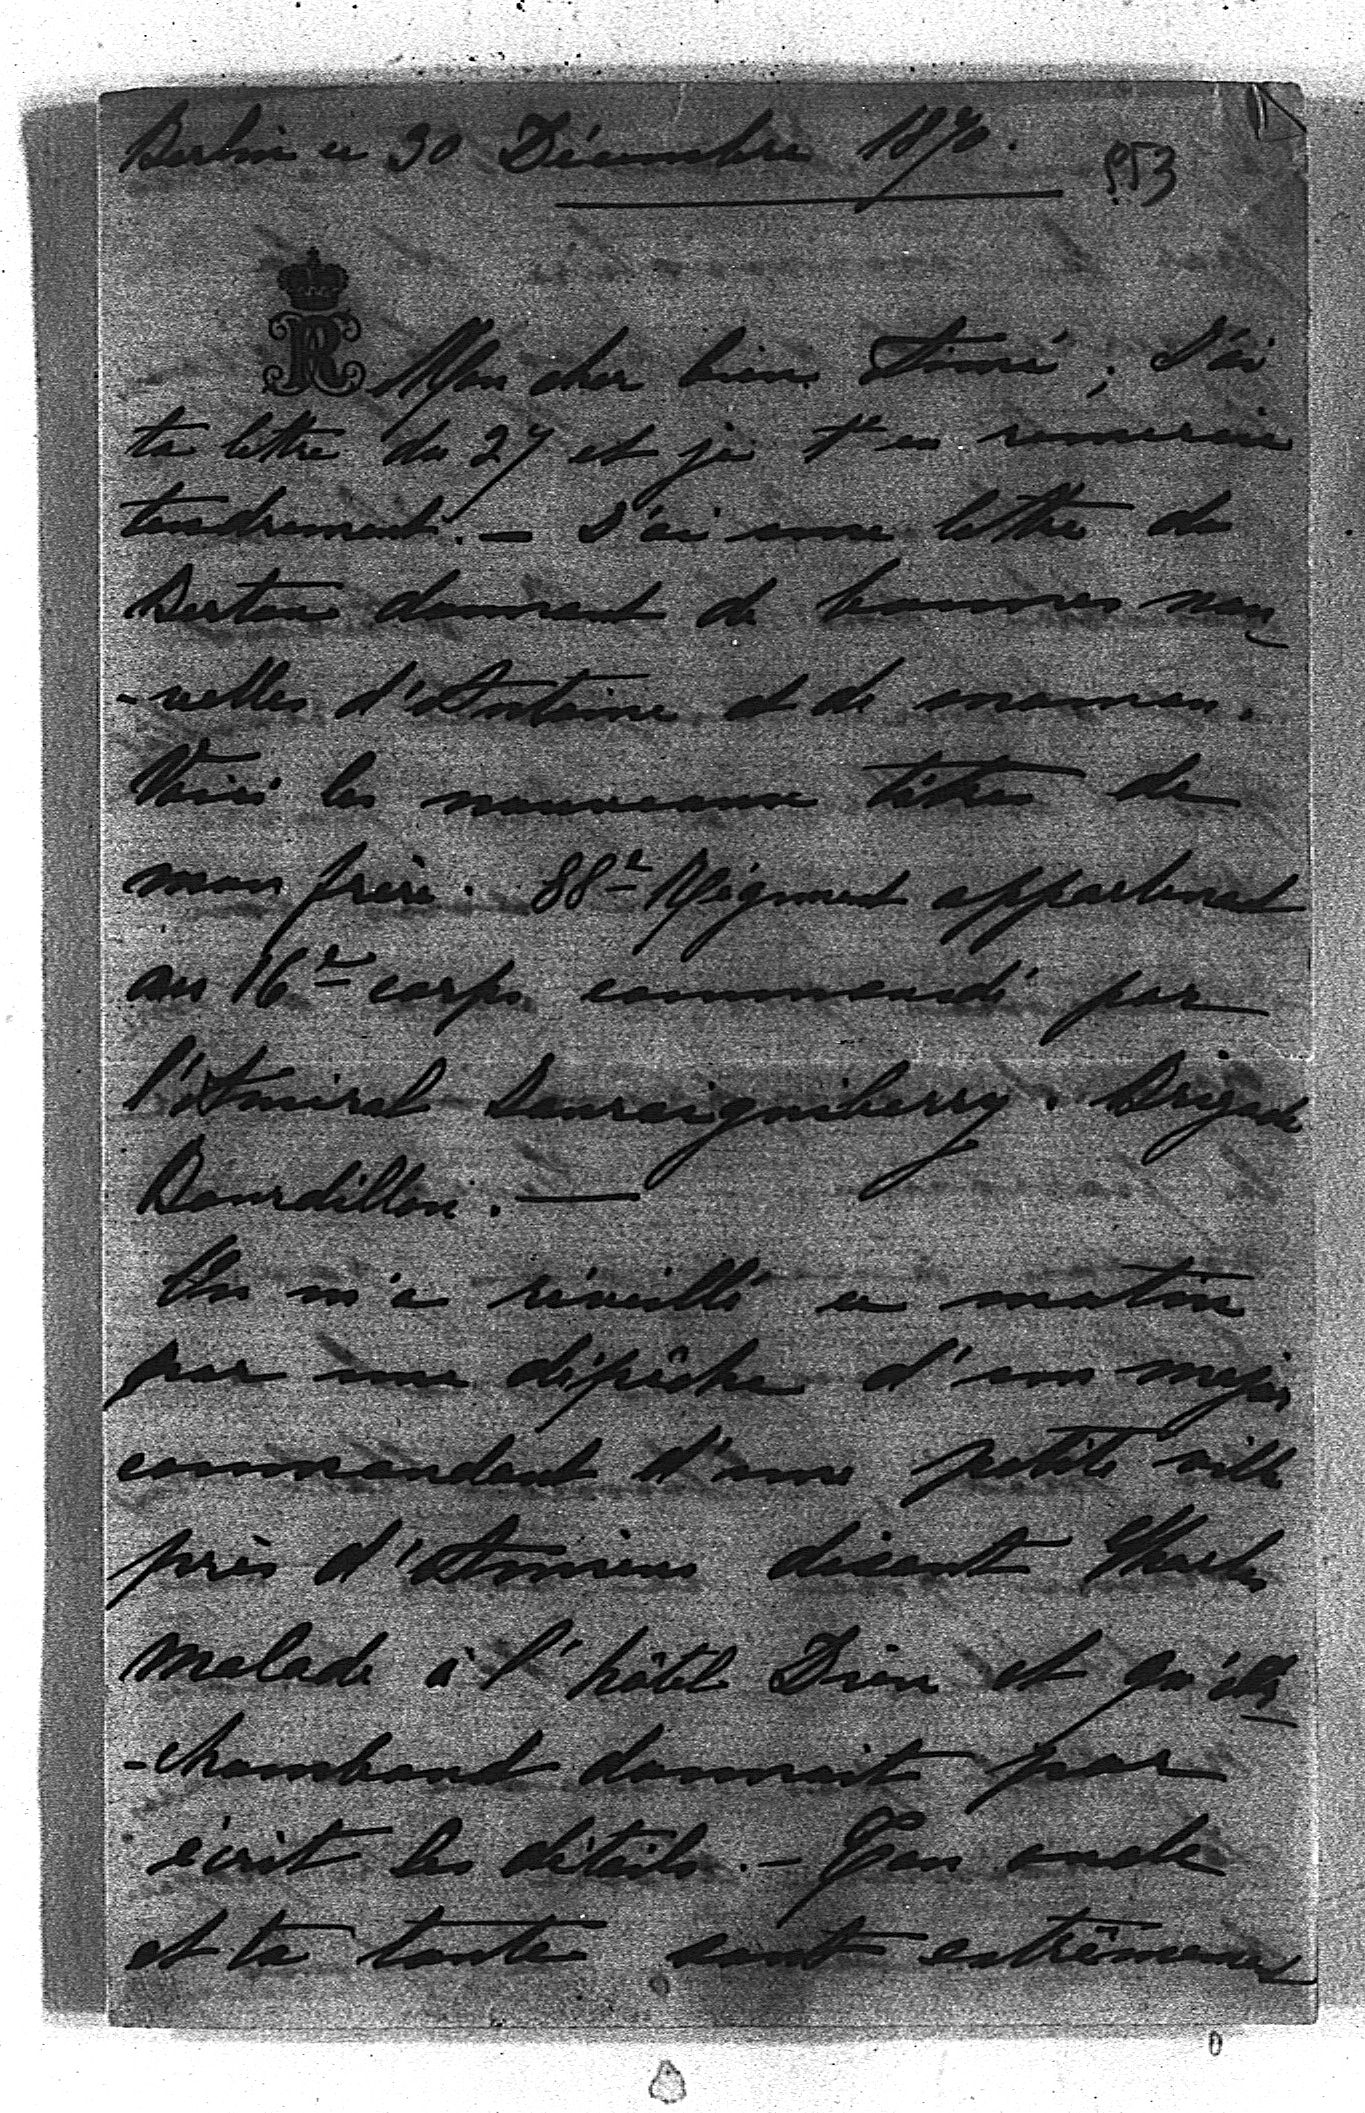 Berlin ce 30 Décembre 1870.
553
Mon cher bien Aimé, J'ai
ta lettre du 27 et je t'en remercie
tendrement. — J'ai une lettre de
Berton donnant de bonnes nou
-velles d'Antoine et de maman.
Voici les nouveaux titres de
mon frère. 88e Régiment appartenant
au 16e corps commandé par
l'Amiral Jauréguiberry. Brigade
Bourdillon. —
On m'a réveillé ce matin
par une dépêche d'un major
commandant d'une petite ville
près d'Amiens disant Charles
malade à l'hôtel Dieu et qu'
donnait par
écrit les détails. — Ton oncle
et ta tante sont extrêmement